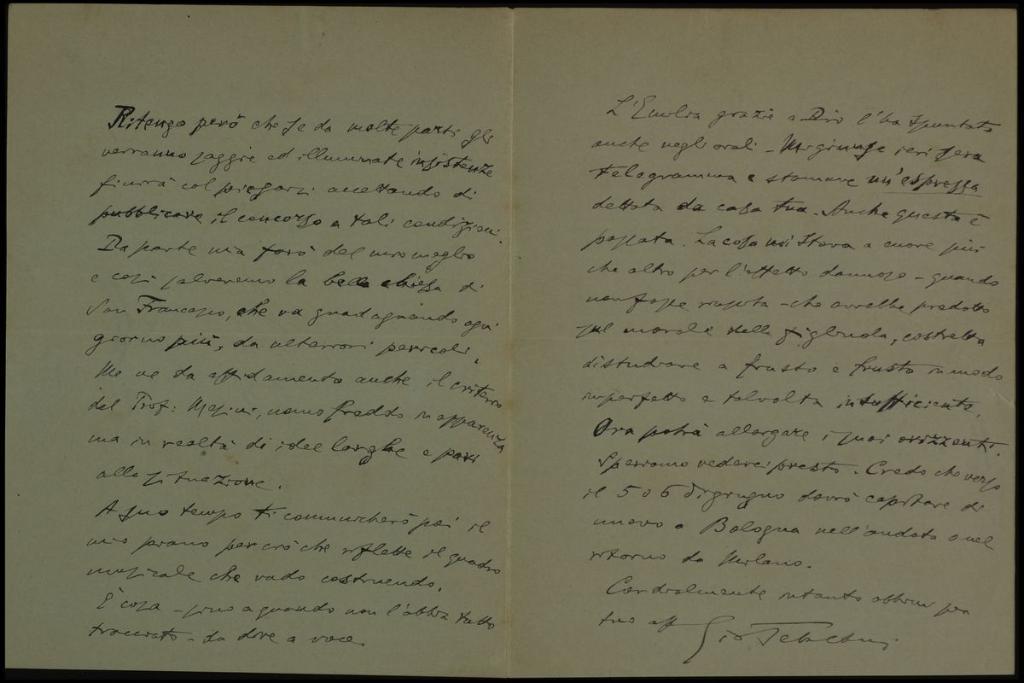 Ritengo però che se da molte parti gli
verranno saggie ed illuminate insistenze
finirà col piegarsi accettando di
pubblicare il concorso a tali condizioni.
Da parte mia farò del mio meglio
e così salveremo la bella chiesa di
San Francesco, che va guadagnando ogni
giorno più, da ulteriori pericoli.
Me ne dà affidamento anche il criterio
del Prof: Masini, uomo freddo in apparenza
ma in realtà di idee larghe e pari
alla situazione.
A suo tempo ti comunicherò poi il
mio piano per ciò che riflette il quadro
musicale che vado costruendo.
È cosa - fino a quando non l'abbia tutto
tracciato - da dire a voce.
L'Emilia grazie a Dio l'ha spuntata
anche negli orali - Mi giunse ieri sera
telegramma e stamane un'espresso
dettata da casa tua. Anche questa è
passata. La cosa mi stava a cuore più
che altro per l'effetto dannoso - quando
non fosse riuscita - che avrebbe prodotto
sul morale della figliuola, costretta
di studiare a frusto a frusto in modo
imperfetto e talvolta insufficiente.
Ora potrà allargare i suoi orizzonti.
Speriamo vederci presto. Credo che verso
il 5 o 6 di giugno dovrò capitare di
nuovo a Bologna nell'andata o nel
ritorno da Milano.
Cordialmente intanto abbimi pra
tuo aff Gio Tebaldini